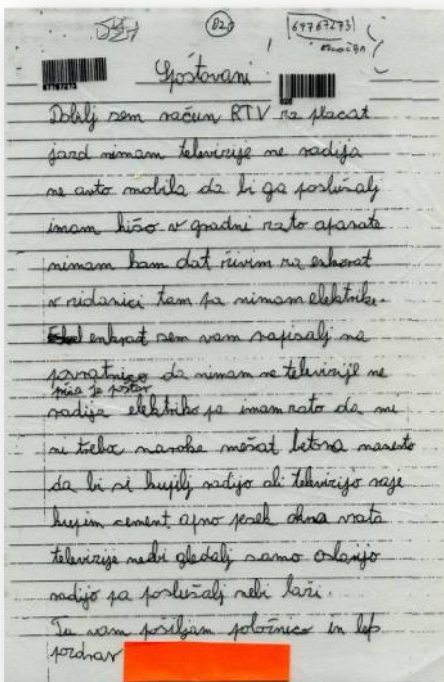 820
69767273
Spoštovani
67767273
820
Dobilj sem račun RTV za placat
jard nimam televizije ne radija
ne avto mobila da bi ga poslušalj
imam hišo v gradni zato aparate
nimam kam dat živim za enkrat
v zidanici tam pa nimam elektrike.
enkrat sem vam napisalj na
povratnico da nimam ne televizije ne
radija elektriko pa imam zato da mi
ni treba naroke mešat betona namesto
da bi si kupilj radijo ali televizijo raje
kupim cement apno pesek okna vrata
televizije nebi gledalj samo oslarijo
radijo pa poslušalj nebi laži.
Tu vam pošiljam položnico in lep
pozdrav